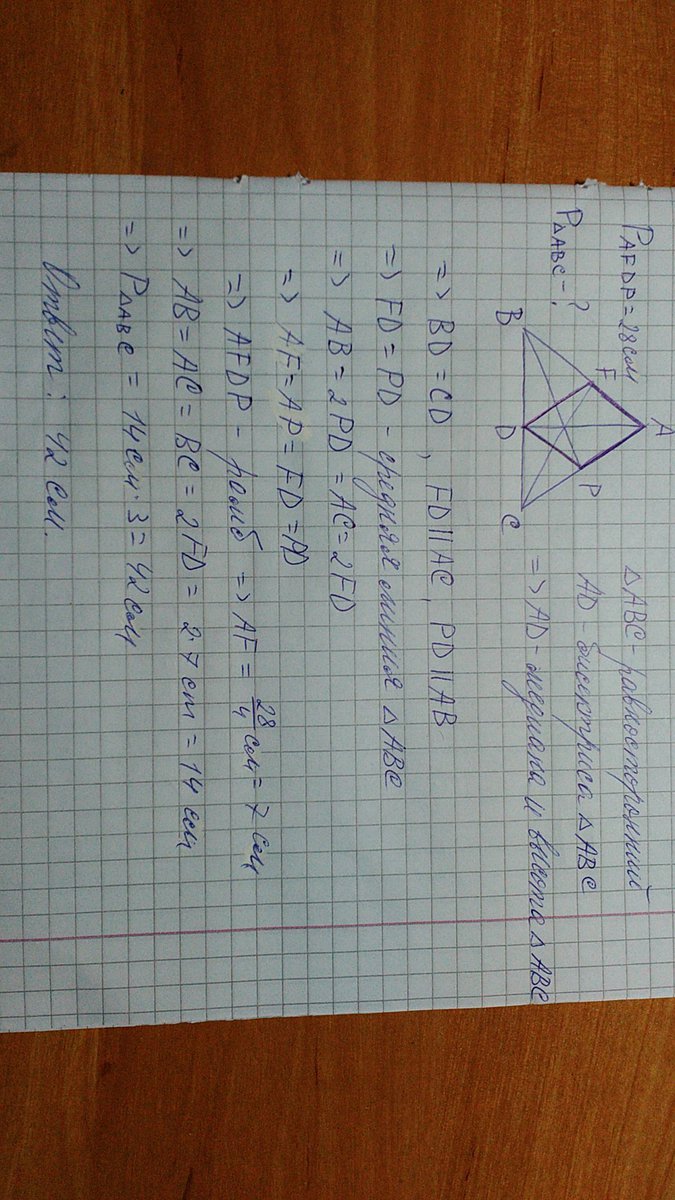 P AFDP = 28 см
P ΔABC - ?
A
F
P
B
D
C
ΔABC - равносторонний
AD - биссектриса ΔABC
=> AD - медиана и высота ΔABC
=> BD = CD, FD || AC, PD || AB
=> FD = PD - средняя линия ΔABC
=> AB = 2PD = AC = 2FD
=> AF = AP = FD = PD
=> AFDP - ромб => AF = 28/4 см = 7 см
=> AB = AC = BC = 2FD = 2·7 cm = 14 см
=> P ΔABC = 14 см · 3 = 42 см
Ответ: 42 см.